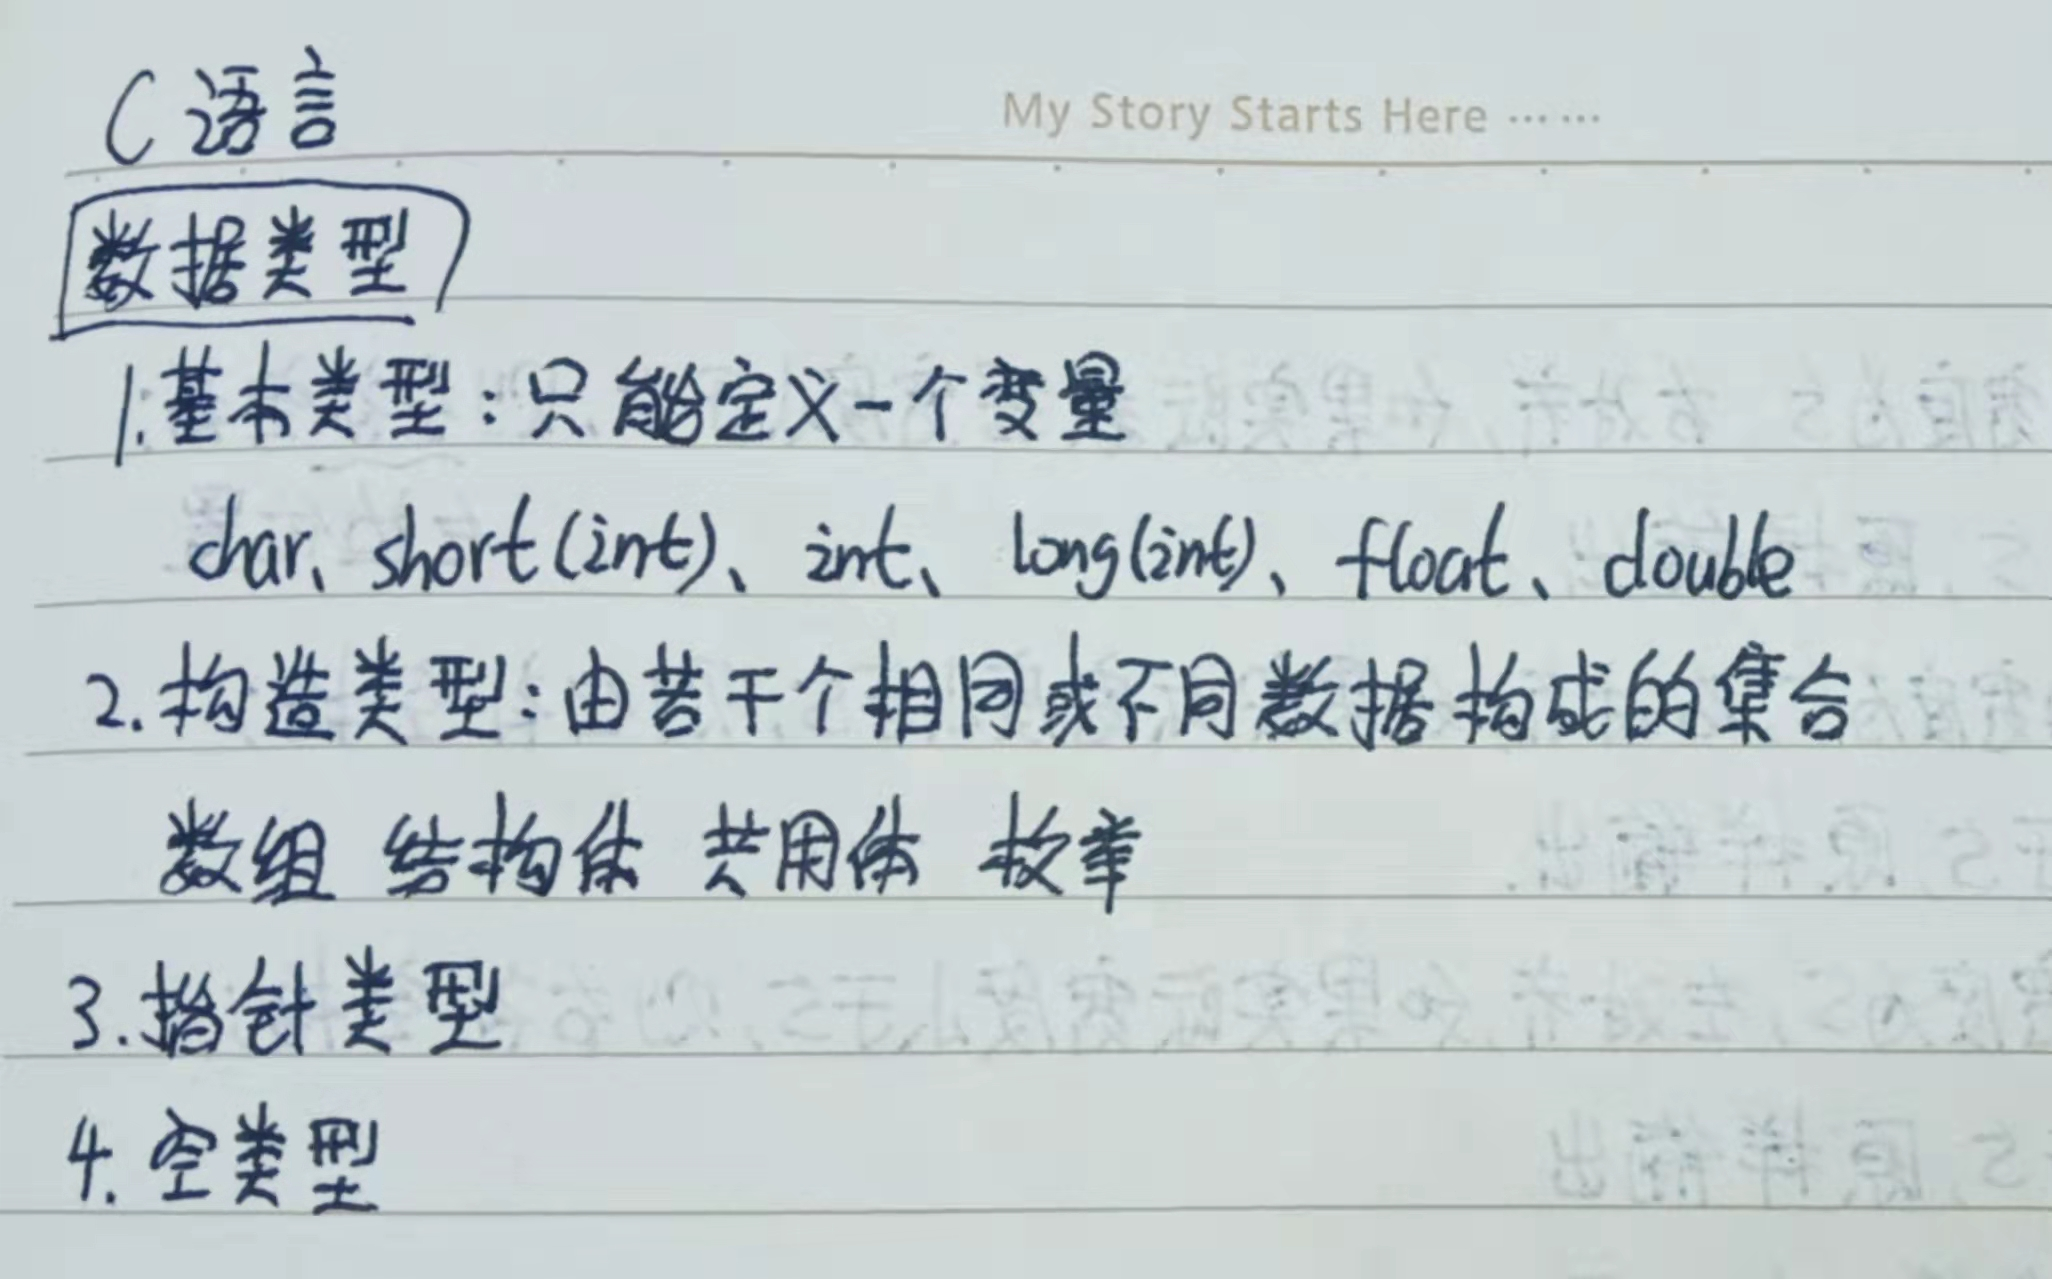 C语言
My Story Starts Here ……
数据类型
1.基本类型：只能定义一个变量
char、short(int)、int、long(int)、float、double
2.构造类型：由若干个相同或不同数据构成的集合
数组 结构体 共用体 枚举
3.指针类型
4.空类型